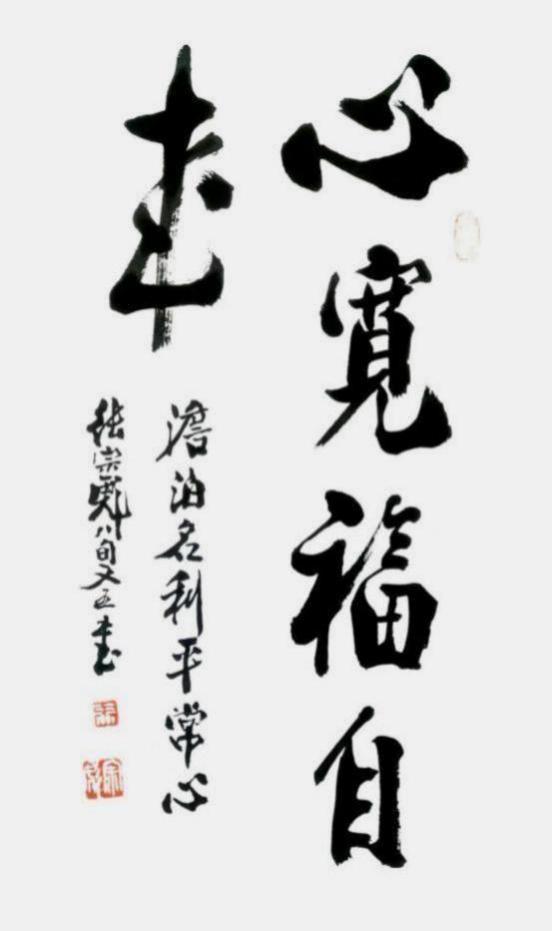 心寬福自
来
澹泊名利平常心
張宗 八旬又五書